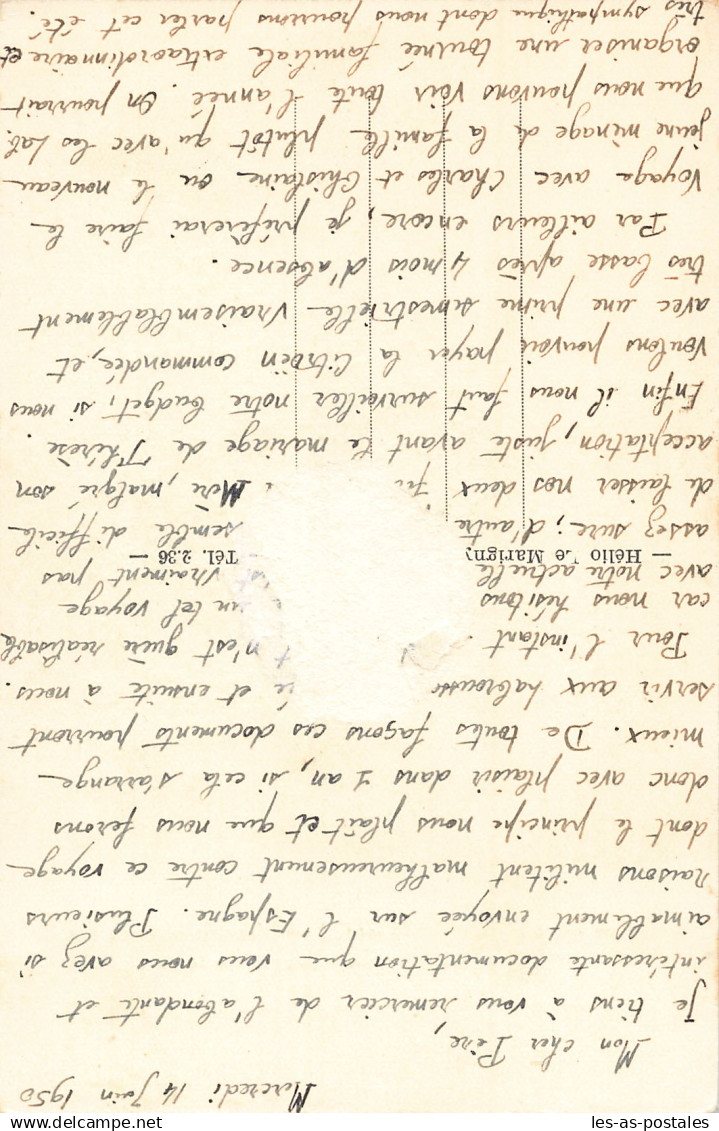 Mercredi 14 Juin 1950
Mon cher Père,
Je tiens à vous remercier de l'abondante et
intéressante documentation que vous nous avez si
aimablement envoyée sur l'Espagne. Plusieurs
raisons militent malheureusement contre ce voyage
dont le principe nous plaît et que nous ferons
donc avec plaisir dans 1 an, si cela s'arrange
mieux. De toutes façons ces documents pourront
servir aux Labrousse et ensuite à nous.
Pour l'instant n'est guère réalisable
car nous hésitons un tel voyage
avec notre actuelle vraiment pas
— Hélio Le Marigny Tél. 2.36 —
assez sure ; d'autre semble difficile
de laisser nos deux Mère, malgré son
acceptation, juste avant le mariage de Thérèse.
Enfin il nous faut surveiller notre budget, si nous
voulons pouvoir payer la Citroën commandée, et
avec une prime semestrielle vraisemblablement
très basse après 4 mois d'absence.
Par ailleurs encore, je préfèrerai faire le
voyage avec Charles et Ghislaine ou le nouveau
jeune ménage de la famille plutôt qu'avec les Lab.
que nous pouvons voir toute l'année. On pourrait
organiser une tournée familiale extraordinaire et
très sympathique dont nous pourrons parler cet été.
les-as-postales